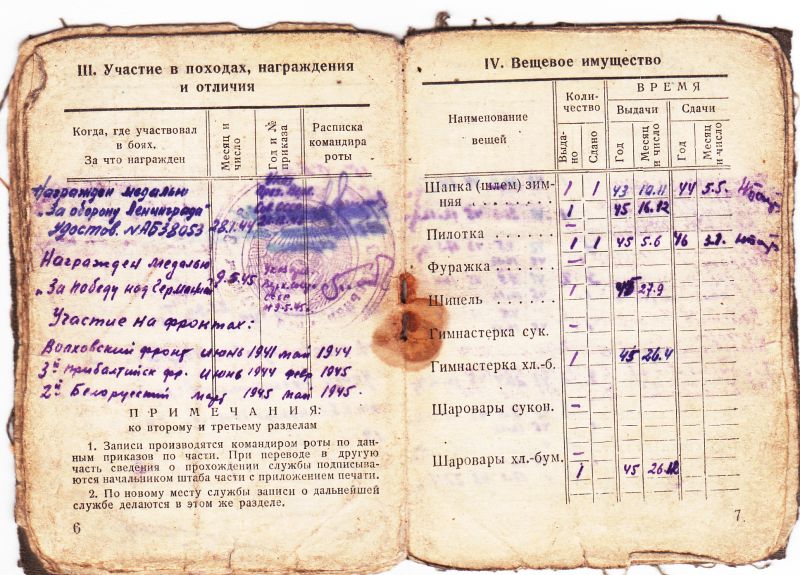 III. Участие в походах, награждения
и отличия
Когда, где участвовал
в боях.
За что награжден
Месяц и
число
Год и №
приказа
Расписка
командира
роты
Награжден медалью
"За оборону Ленинграда"
Удостов. № АБ38053 28.1.44
Награжден медалью
"За победу над Германией 9.5.45
Участие на фронтах:
Волховский фронт июнь 1941 май 1944
3й Прибалтийск фр. июнь 1944 февр 1945
2й Белорусский март 1945 май 1945.
ПРИМЕЧАНИЯ:
ко второму и третьему разделам
1. Записи производятся командиром роты по дан-
ным приказов по части. При переводе в другую
часть сведения о прохождении службы подписыва-
ются начальником штаба части с приложением печати.
2. По новому месту службы записи о дальнейшей
службе делаются в этом же разделе.
6
IV. Вещевое имущество
Наименование
вещей
Коли-
чество
ВРЕМЯ
Выдачи
Сдачи
Выда-
но
Сдано
Год
Месяц
и число
Год
Месяц
и число
Шапка (шлем) зим- 1 1 43 10.11 44 5.5.
няя . . . . . . . . 1 45 16.12
Пилотка . . . . . . 1 1 45 5.6 46
Фуражка . . . . . . -
Шинель . . . . . . 1 45 27.9
Гимнастерка сук. -
Гимнастерка хл.-б. 1 45 26.4
Шаровары сукон. -
Шаровары хл.-бум. -
1 45 26.12
7